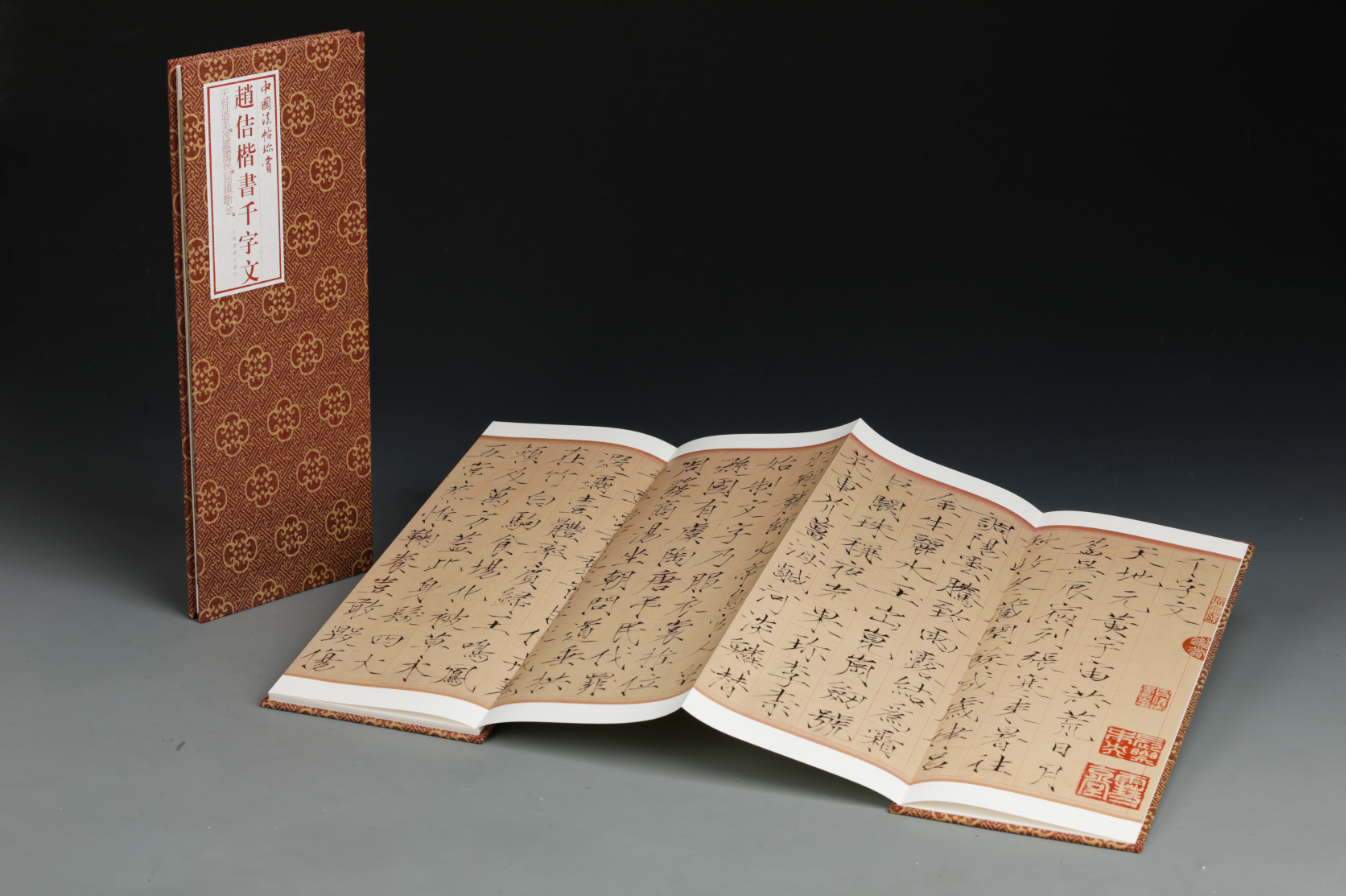 中國法帖珍賞
趙佶楷書千字文
千字文
天地元黃宇宙洪荒日月
盈昃辰宿列張寒來暑往
秋收冬藏閏餘成歲律呂
調陽雲騰致雨露結為霜
金生麗水玉出崑崗劒號
巨闕珠稱夜光果珍李柰
菜重芥薑海鹹河淡鱗潛
翔龍師火帝鳥
始制文字乃服衣裳推位
遜國有虞陶唐弔民伐罪
周發商湯坐朝問道垂拱
遐邇壹體率賓歸王鳴鳳
在竹白駒食場化被草木
賴及萬方蓋此身髮四大
五常恭惟鞠養豈敢毀傷